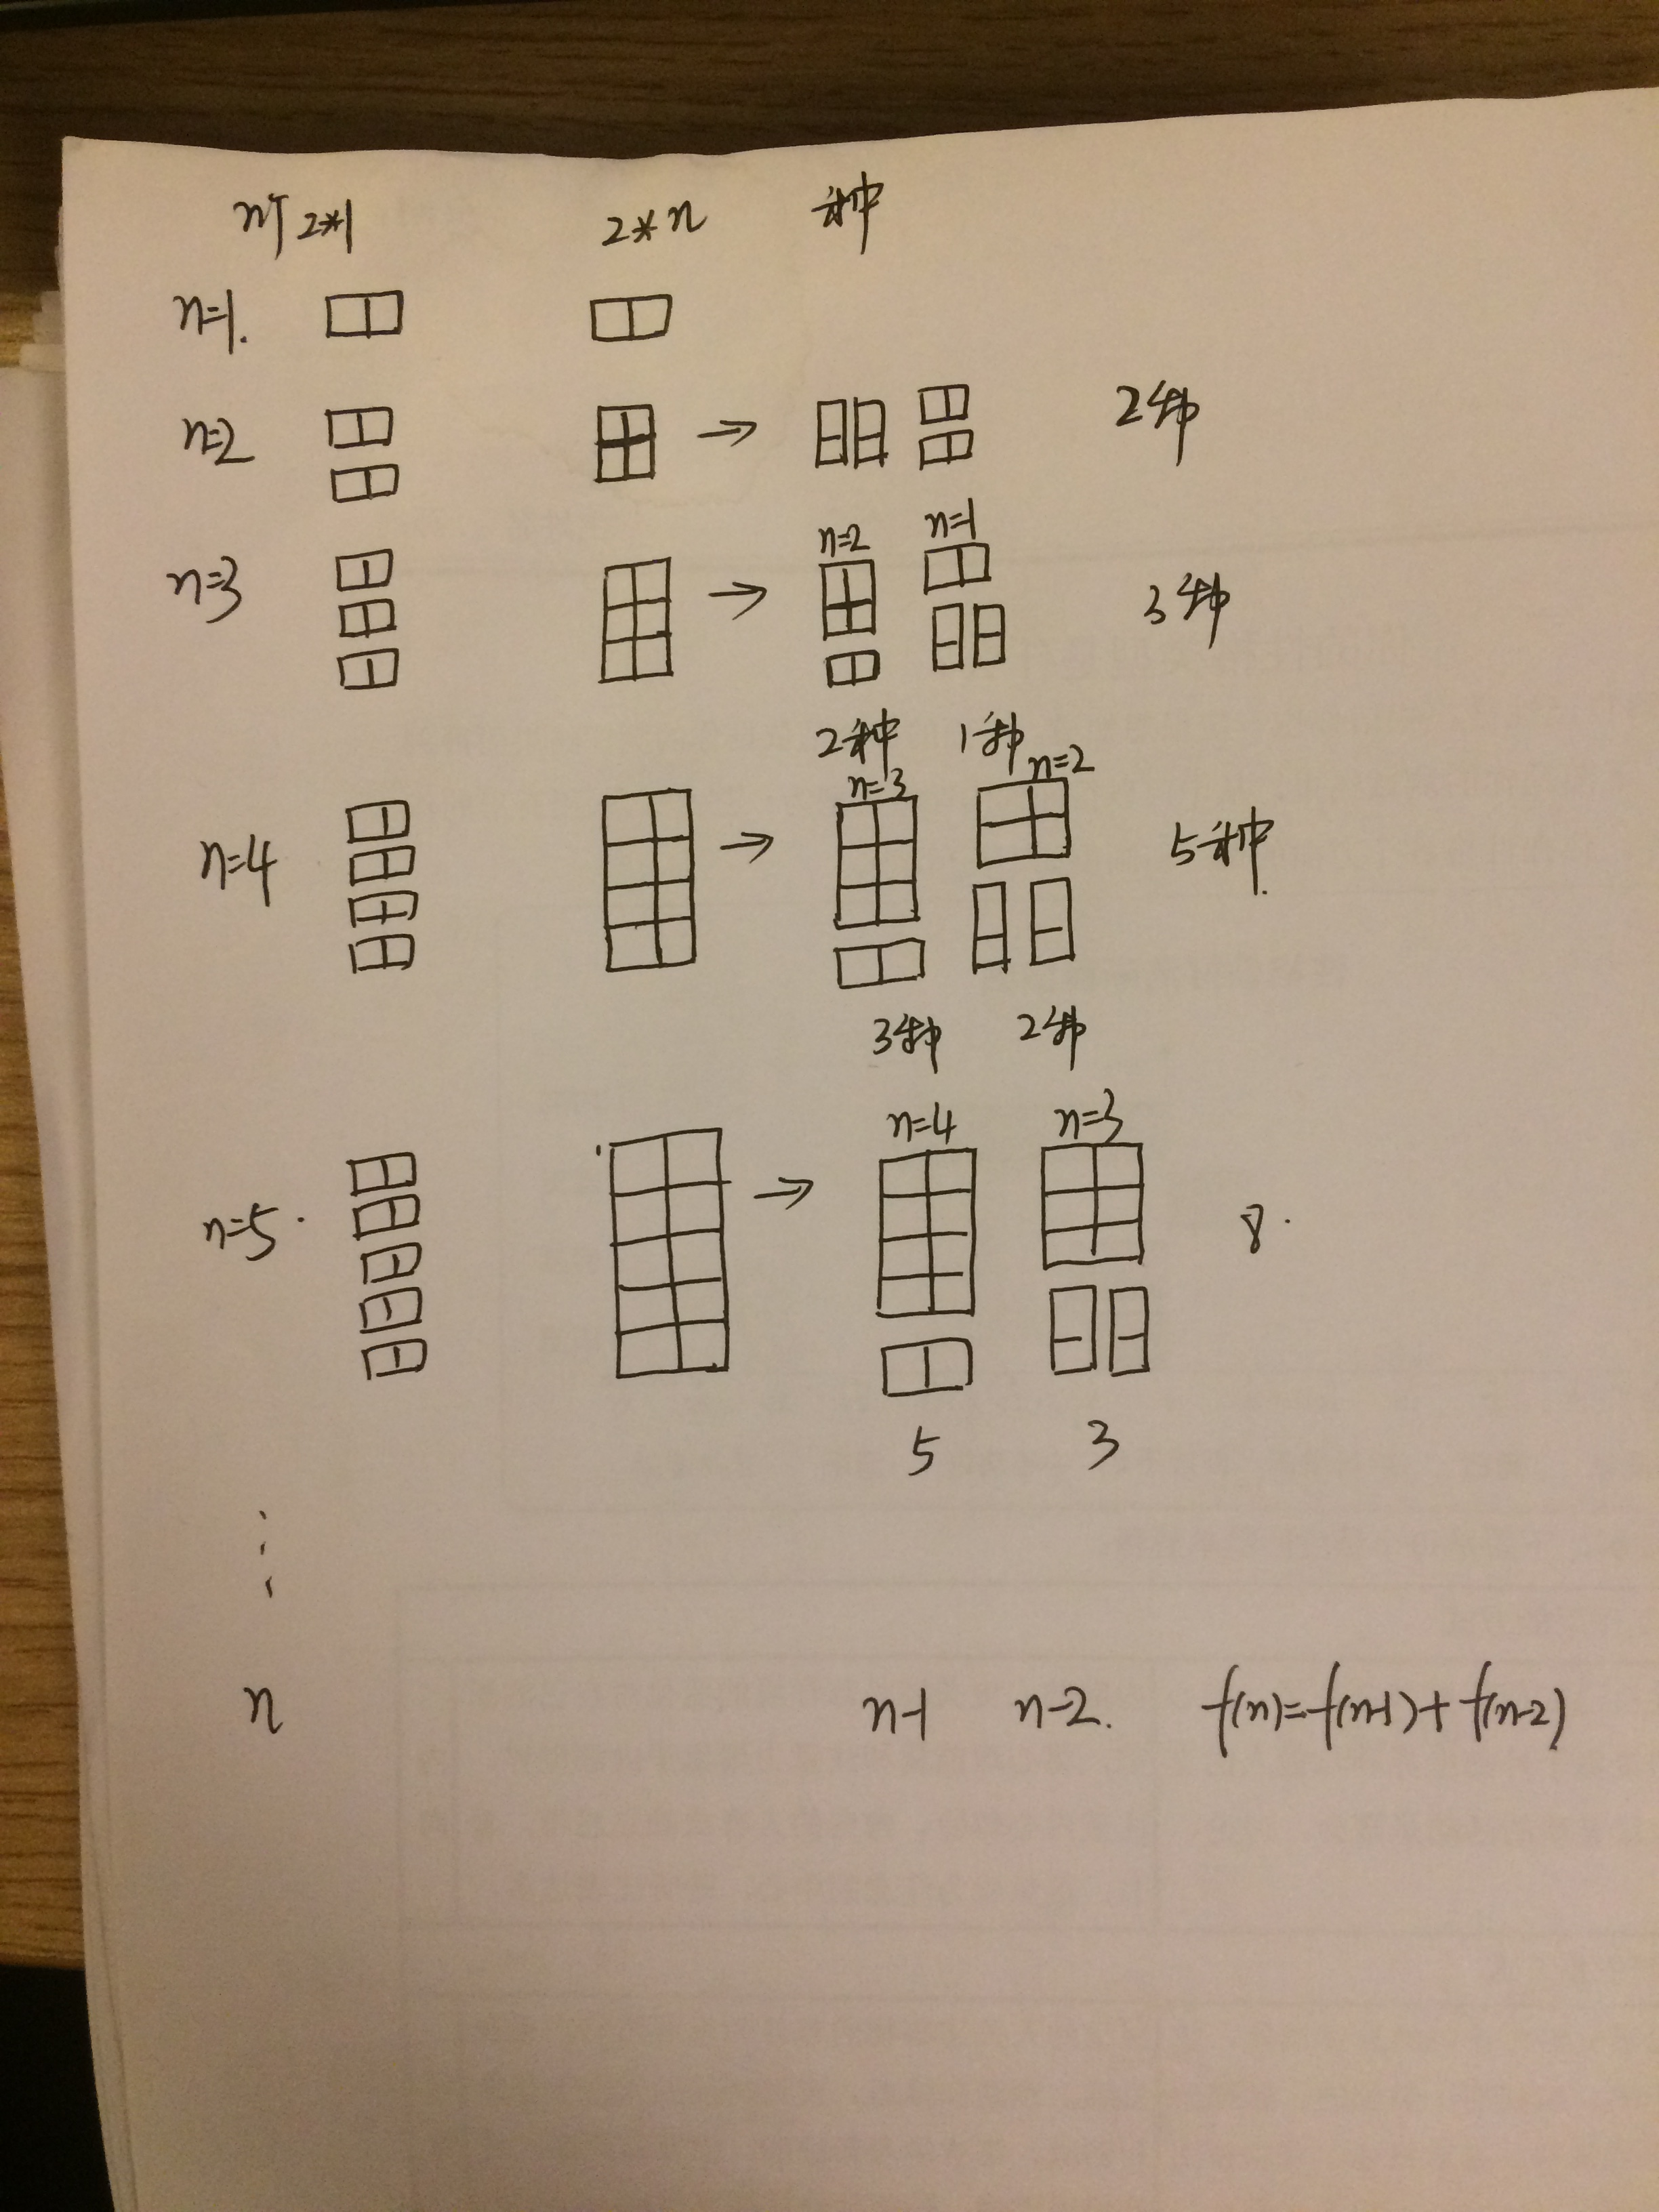 n个 2*1 2*n 种
n=1.
n=2 2种
n=2 n=1
n=3 3种
2种 1种
n=3 n=2
n=4 5种.
3种 2种
n=4 n=3
n=5. 8.
5 3
⋮
n n-1 n-2. f(n)=f(n-1)+f(n-2)